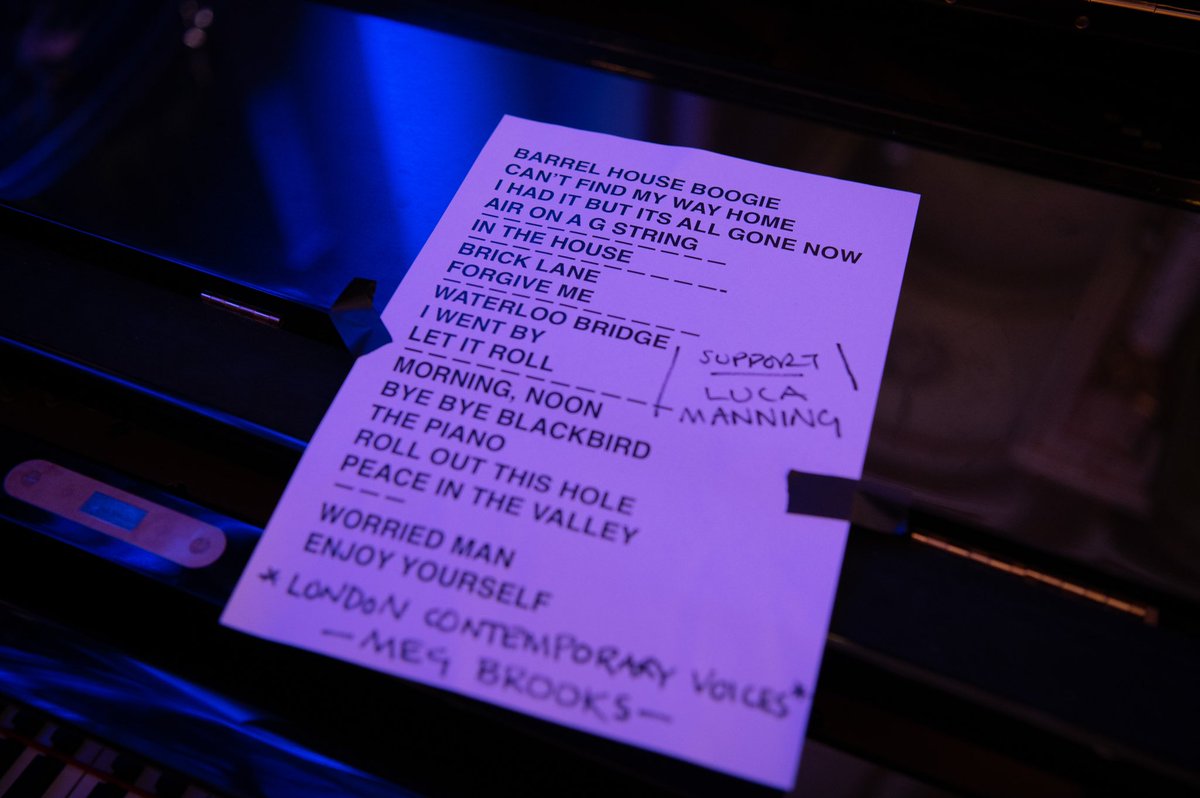 BARREL HOUSE BOOGIE
CAN'T FIND MY WAY HOME
I HAD IT BUT ITS ALL GONE NOW
AIR ON A G STRING
IN THE HOUSE
BRICK LANE
FORGIVE ME
WATERLOO BRIDGE
I WENT BY
LET IT ROLL
SUPPORT
LUCA
MANNING
MORNING, NOON
BYE BYE BLACKBIRD
THE PIANO
ROLL OUT THIS HOLE
PEACE IN THE VALLEY
WORRIED MAN
ENJOY YOURSELF
*LONDON CONTEMPORARY VOICES*
— MEG BROOKS —